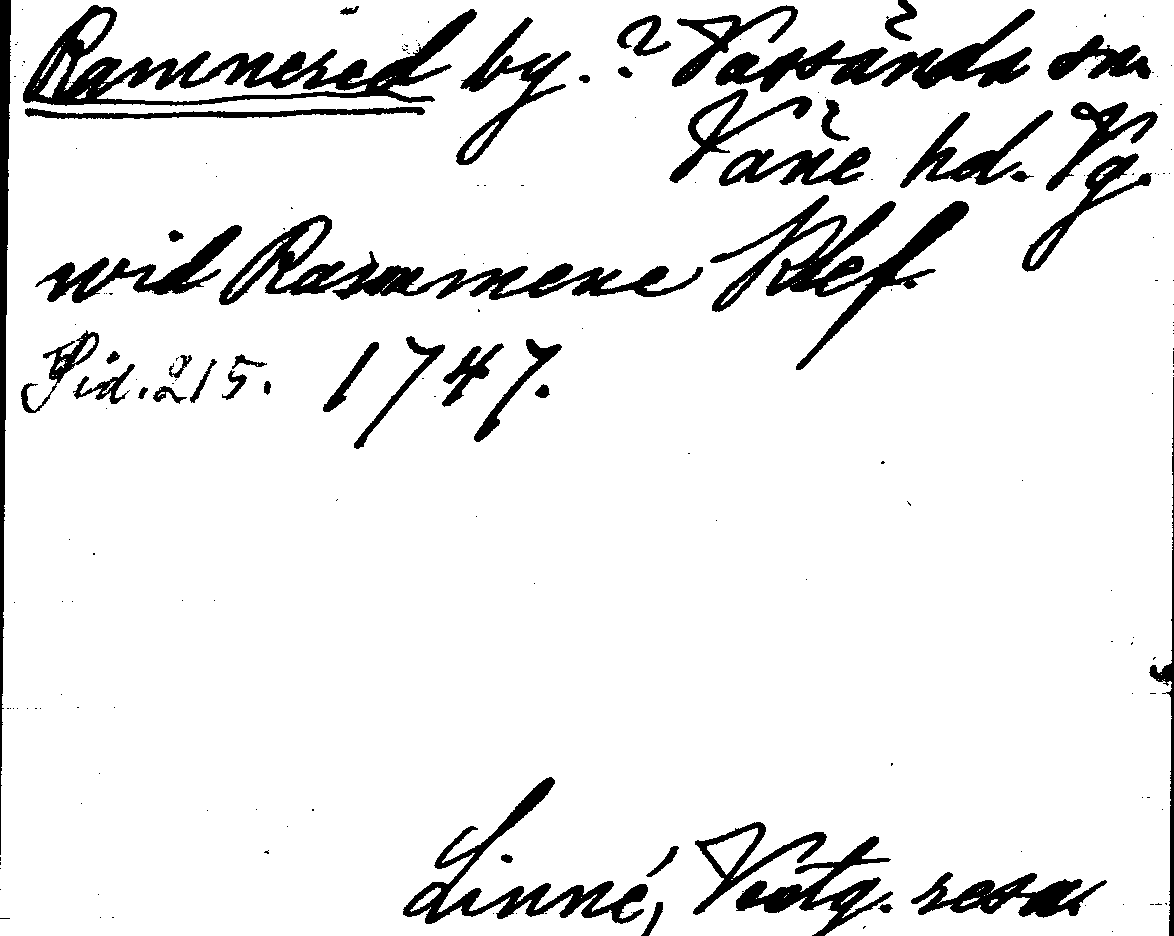 Ramnered by. ? Vassända sn.
Väne hd. Vg.
wid Rammene Klef.
Sid. 215. 1747.
Linné, Västg. resa.